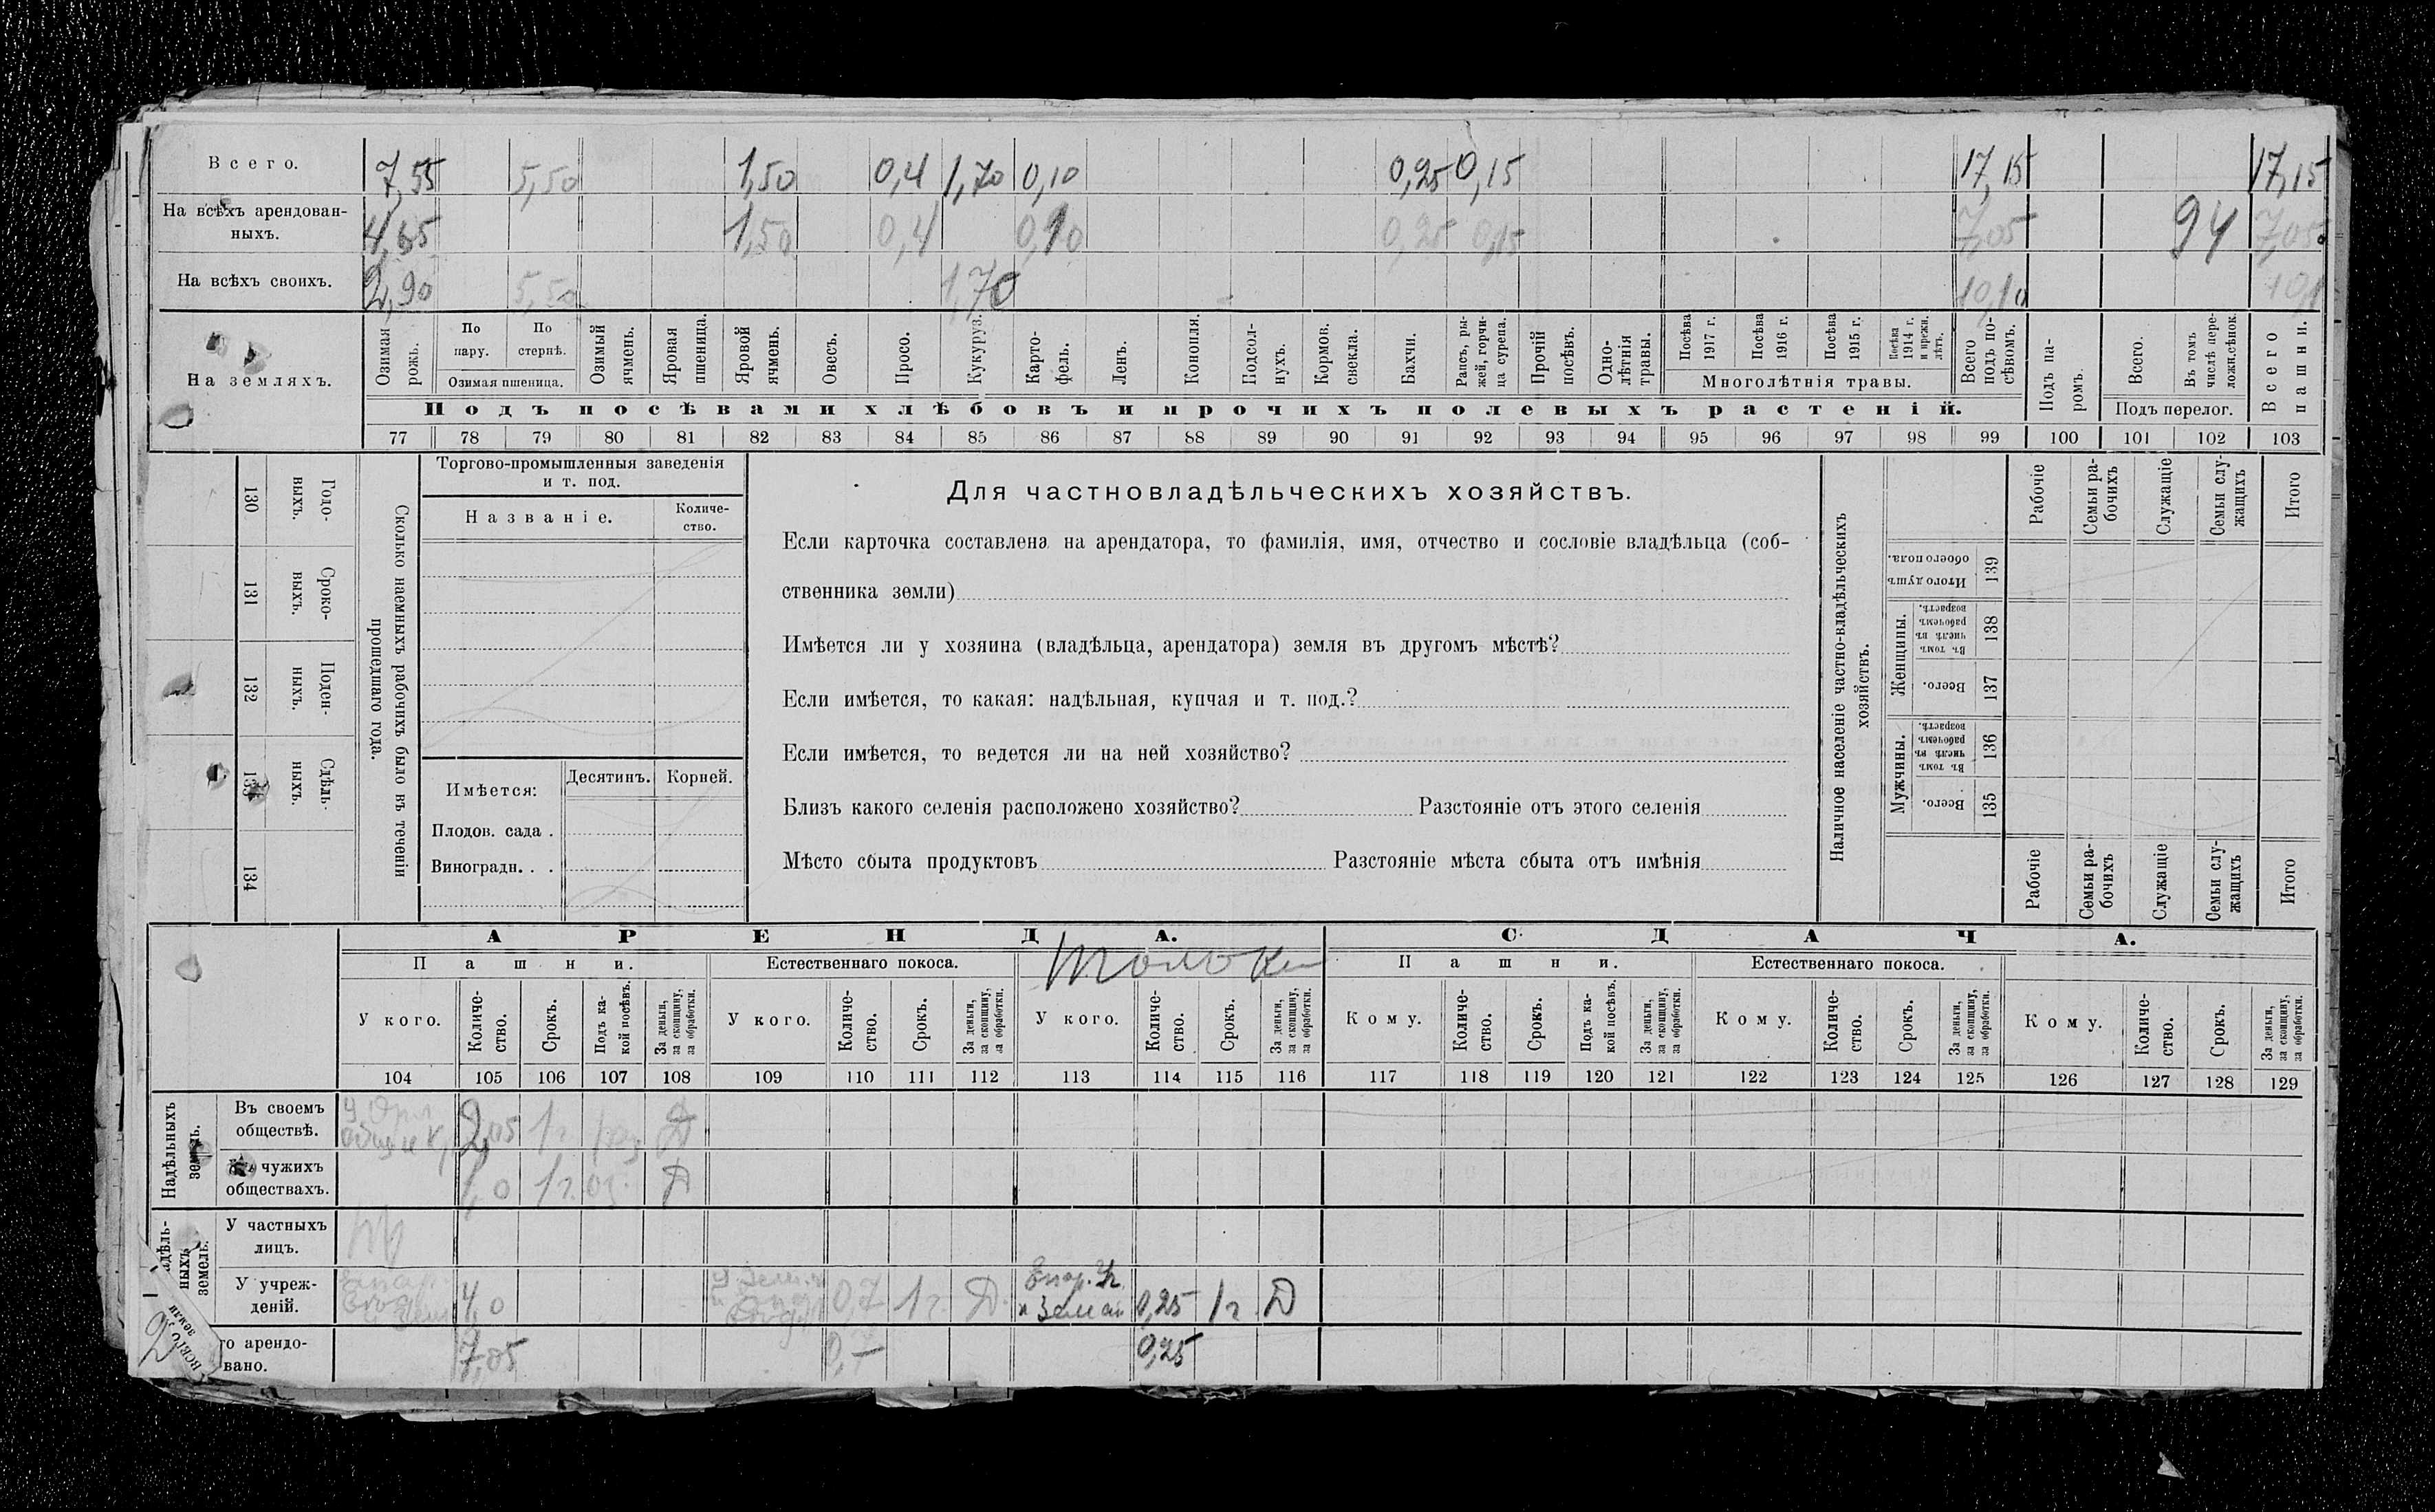 Всего. 7,55 5,50 1,50 0,4 1,70 0,10 0,25 0,15 17,15 17,15
На всѣхъ арендован-
ныхъ. 4,65 1,50 0,4 0,10 0,25 0,15 7,05 94 7,05
На всѣхъ своихъ. 2,90 5,50 1,70 10,10 10,1
На земляхъ.
Озимая рожь.
По пару.
По стернѣ.
Озимая пшеница.
Озимый ячмень.
Яровая пшеница.
Яровой ячмень.
Овесъ.
Просо.
Кукуруз.
Карто-
фель.
Ленъ.
Конопля.
Подсол-
нухъ.
Кормов. свекла.
Бахчи.
Рапсъ, ры-
жей, горчи-
ца сурепа.
Прочій посѣвъ.
Одно-
лѣтнія травы.
Посѣва 1917 г.
Посѣва 1916 г.
Посѣва 1915 г.
Посѣва 1914 г. и прежн. лѣтъ.
Многолѣтнія травы.
Всего подъ по-
сѣвомъ.
Подъ па-
ромъ.
Всего.
Въ томъ числѣ пере-
ложн.сѣнок.
Подъ перелог.
Всего пашни.
Подъ посѣвами хлѣбовъ и прочихъ полевыхъ растеній.
77 78 79 80 81 82 83 84 85 86 87 88 89 90 91 92 93 94 95 96 97 98 99 100 101 102 103
130 Годо-
ныхъ.
131 Сроко-
выхъ.
132 Поден-
ныхъ.
133 Сдѣль-
ныхъ.
134
Сколько наемныхъ рабочихъ было въ теченіи
прошедшаго года.
Торгово-промышленныя заведенія
и т. под.
Названіе.
Количе-
ство.
Имѣется:
Десятинъ.
Корней.
Плодов. сада .
Виноградн. . .
Для частновладѣльческихъ хозяйствъ.
Если карточка составлена на арендатора, то фамилія, имя, отчество и сословіе владѣльца (соб-
ственника земли)
Имѣется ли у хозяина (владѣльца, арендатора) земля въ другомъ мѣстѣ?
Если имѣется, то какая: надѣльная, купчая и т. под.?
Если имѣется, то ведется ли на ней хозяйство?
Близъ какого селенія расположено хозяйство? Разстояніе отъ этого селенія
Мѣсто сбыта продуктовъ Разстояніе мѣста сбыта отъ имѣнія
Наличное населеніе частно-владѣльческихъ
хозяйствъ.
Рабочіе
Семьи ра-
бочихъ
Служащіе
Семьи слу-
жащихъ
Итого
Итого душъ обоего пола. 139
Женщины.
Въ томъ числѣ въ рабочемъ возрастѣ. 138
Всего. 137
Мужчины.
Въ томъ числѣ въ рабочемъ возрастѣ. 136
Всего. 135
Рабочіе
Семьи ра-
бочихъ
Служащіе
Семьи слу-
жащихъ
Итого
АРЕНДА.
СДАЧА.
Пашни.
Естественнаго покоса.
Толоки
Пашни.
Естественнаго покоса.
У кого.
Количе-
ство.
Срокъ.
Подъ ка-
кой посѣвъ.
За деньги,
за скопщину,
за обработки.
У кого.
Количе-
ство.
Срокъ.
За деньги,
за скопщину,
за обработки.
У кого.
Количе-
ство.
Срокъ.
За деньги,
за скопщину,
за обработки.
Кому.
Количе-
ство.
Срокъ.
Подъ ка-
кой посѣвъ.
За деньги,
за скопщину,
за обработки.
Кому.
Количе-
ство.
Срокъ.
За деньги,
за скопщину,
за обработки.
Кому.
Количе-
ство.
Срокъ.
За деньги,
за скопщину,
за обработки.
104 105 106 107 108 109 110 111 112 113 114 115 116 117 118 119 120 121 122 123 124 125 126 127 128 129
Надѣльныхъ
земель.
Въ своемъ
обществѣ. 2,05 1 г. Д
чужихъ
обществахъ. 1,0 1 г. оз. Д
ныхъ
земель.
У частныхъ
лицъ.
У учреж-
деній. 4,0 0,7 1 г. Д. 0,25 1 г. Д
2
всего
земли
го арендо-
вано. 7,05 0,7 0,25